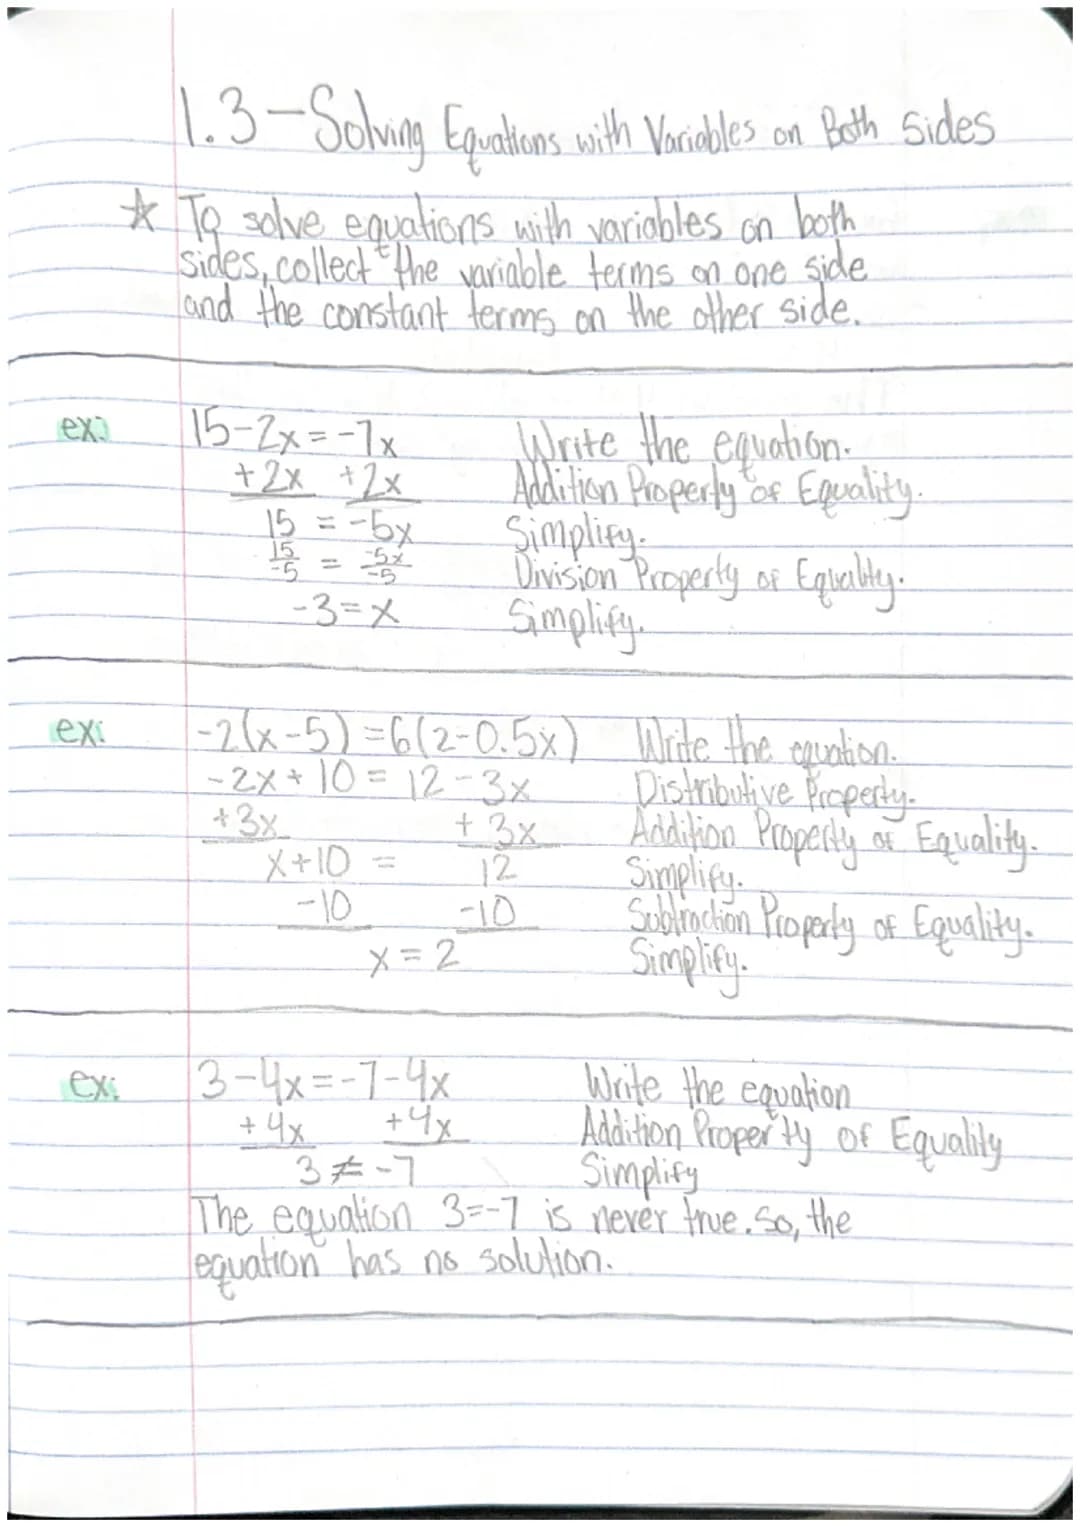 1.3-Solving Equations with Variables on Both Sides
☆ To solve equations with variables on both
sides, collect the variable terms on one side
and the constant terms on the other side.
ex: 15-2x=-7x Write the equation.
+2x +2x Addition Property of Equality.
15 = -5x Simplify.
15/-5 = -5x/-5 Division Property of Equality.
-3=x Simplify.
ex: -2(x-5)=6(2-0.5x) Write the equation.
-2x+10=12-3x Distributive Property.
+3x +3x Addition Property of Equality.
x+10 = 12 Simplify.
-10 -10 Subtraction Property of Equality.
x=2 Simplify.
ex: 3-4x=-7-4x Write the equation
+4x +4x Addition Property of Equality
3≠-7 Simplify
The equation 3=-7 is never true. So, the
equation has no solution.